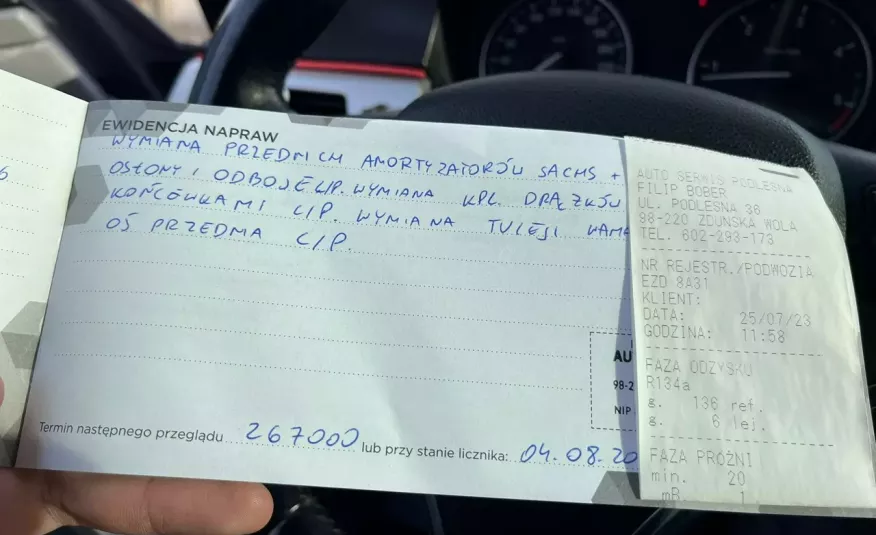 EWIDENCJA NAPRAW
WYMIANA PRZEDNICH AMORTYZATORÓW SACHS +
OSŁONY I ODBOJE L/P. WYMIANA KPL. DRĄŻKÓW
KOŃCÓWKAMI L/P. WYMIANA TULEJI
OŚ PRZEDNIA L/P.
AU
98-2
NIP
Termin następnego przeglądu 267000 lub przy stanie licznika: 04.08.20
AUTO SERWIS PODLEŚNA
FILIP BOBER
UL. PODLEŚNA 36
98-220 ZDUŃSKA WOLA
TEL. 602-293-173
NR REJESTR./PODWOZIA
EZD 8A31
KLIENT:
DATA: 25/07/23
GODZINA: 11:58
FAZA ODZYSKU
R134a
g. 136 ref.
g. 6 lej.
FAZA PRÓŻNI
min. 20
mB. 1